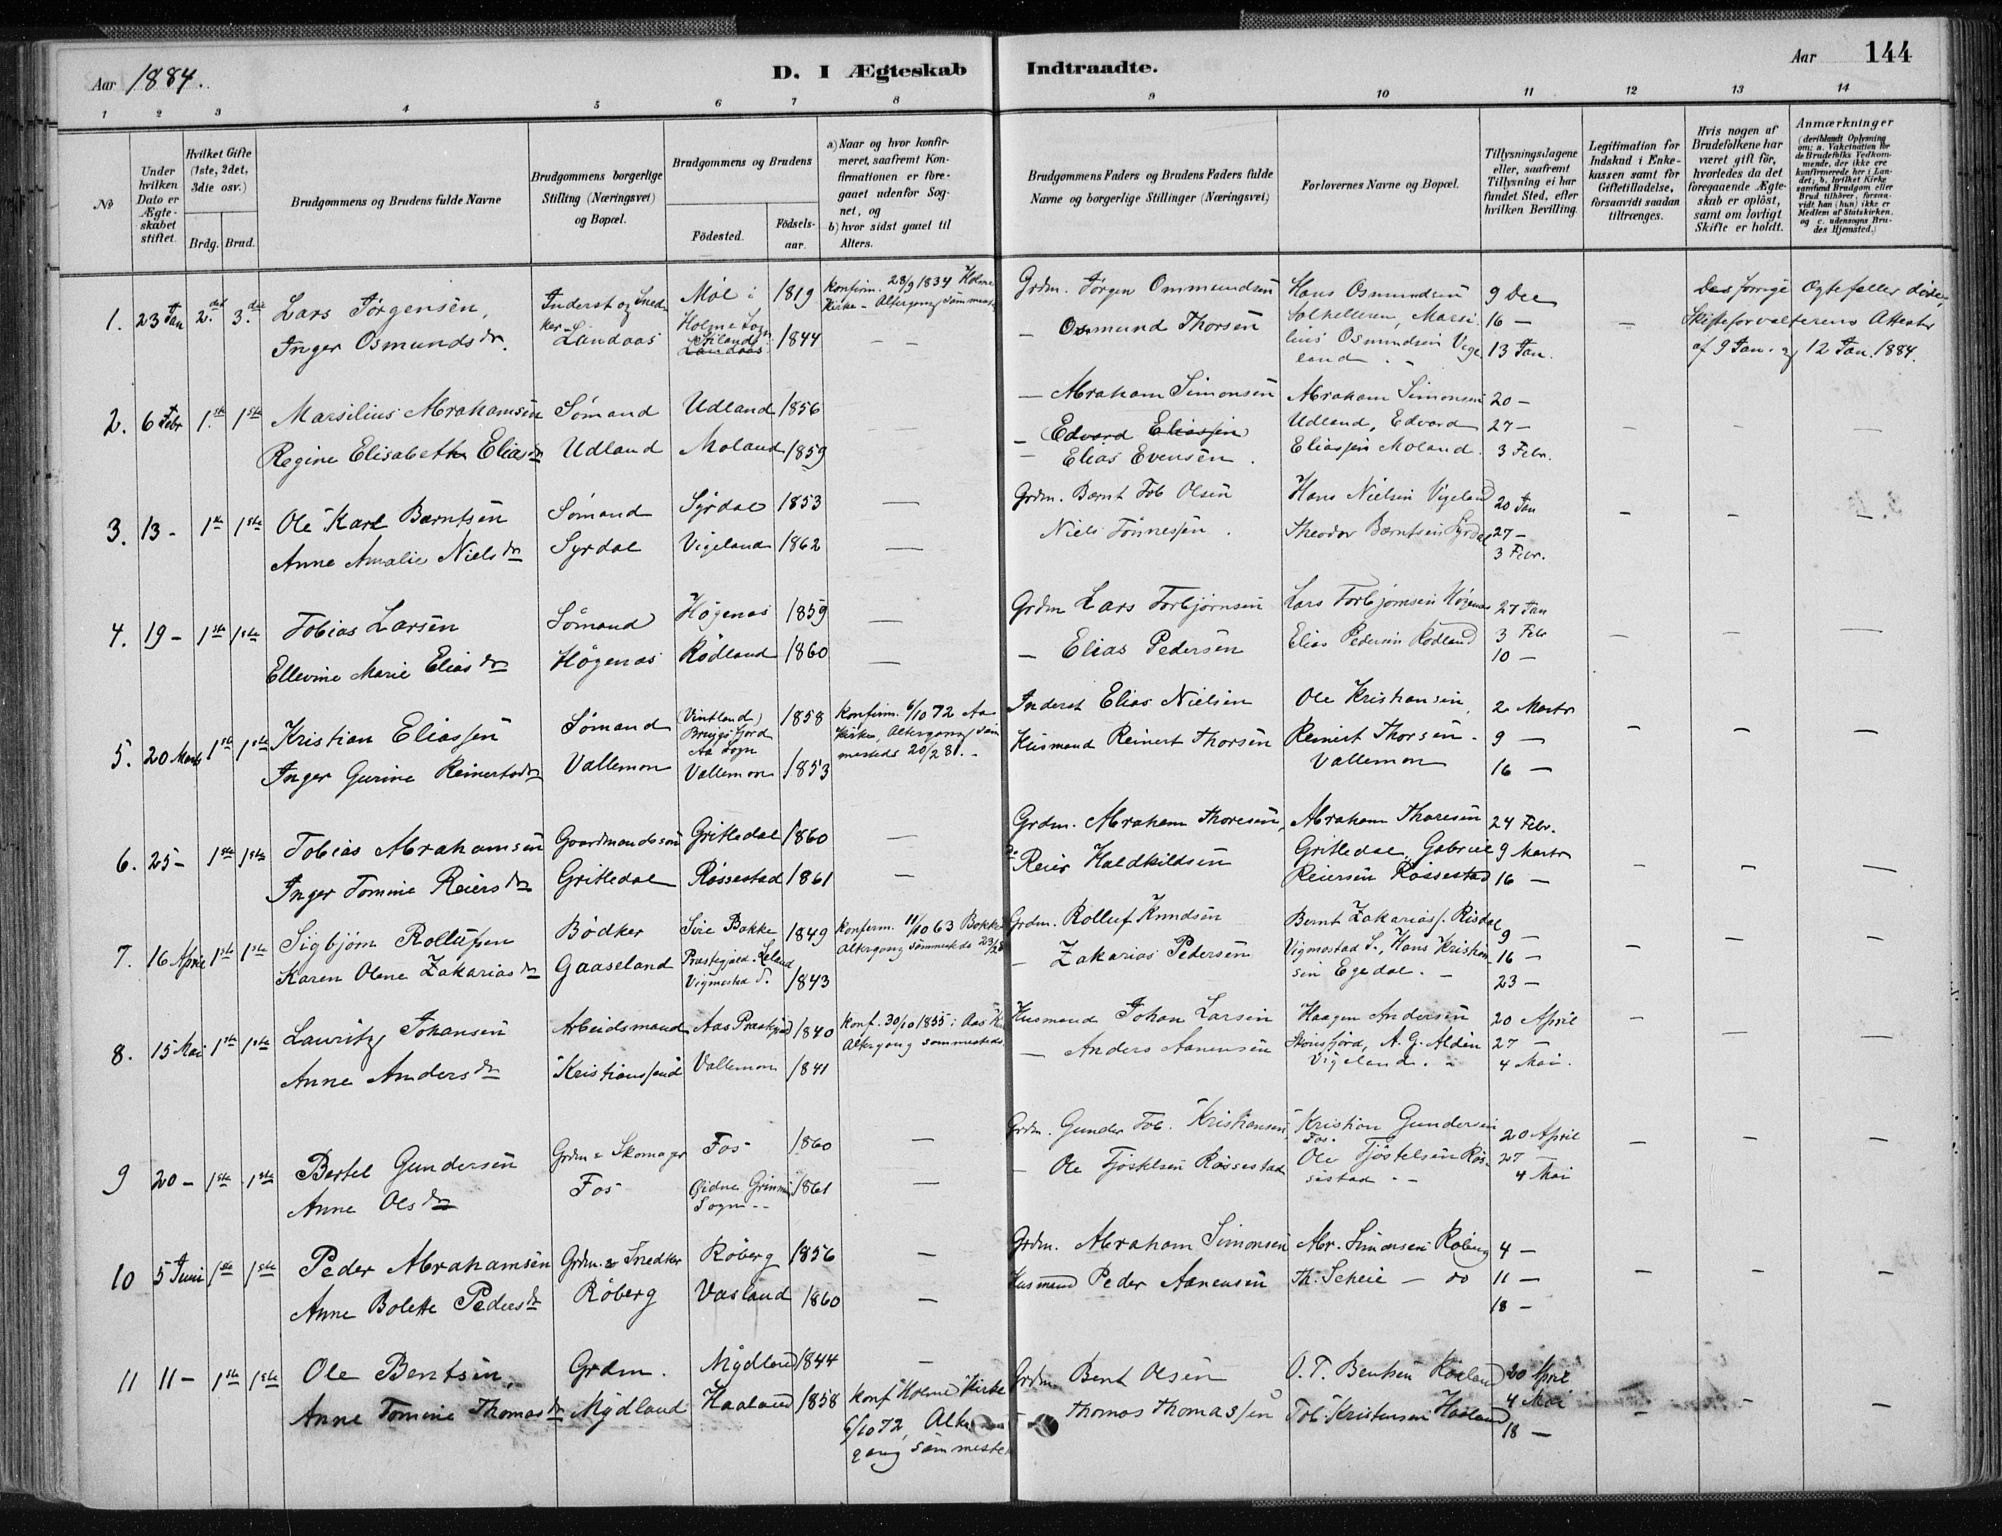 Aar 1884.
D. I Ægteskab Indtraadte.
Aar 144
1 2 3 4 5 6 7 8 9 10 11 12 13 14
No
Under hvilken Dato er Ægteskabet stiftet.
Hvilket Gifte (1ste, 2det, 3die osv.)
Brdg. Brud.
Brudgommens og Brudens fulde Navne
Brudgommens borgerlige Stilling (Næringsvei) og Bopæl.
Brudgommens og Brudens
Fødested.
Fødselsaar.
a) Naar og hvor konfirmeret, saafremt Konfirmationen er foregaaet udenfor Sognet, og
b) hvor sidst gaaet til Alters.
Brudgommens Faders og Brudens Faders fulde Navne og borgerlige Stillinger (Næringsvei)
Forlovernes Navne og Bopæl.
Tillysningsdagene eller, saafremt Tillysning ei har fundet Sted, efter hvilken Bevilling.
Legitimation for Indskud i Enkekassen samt for Giftetilladelse, forsaavidt saadan tiltrænges.
Hvis nogen af Brudefolkene har været gift før, hvorledes da det foregaaende Ægteskab er opløst, samt om lovligt Skifte er holdt.
Anmærkninger
(deriblandt Oplysning om: a. Vakcination for de Brudefolks Vedkommende, der ikke ere konfirmerede her i Landet; b. hvilket Kirkesamfund Brudgom eller Brud tilhører, forsaavidt han (hun) ikke er Medlem af Statskirken, og c. udensogns Brudes Hjemsted.)
1. 23 Jan 2.det 3.die Lars Jørgensen, Inderst og Snedker Møl i 1819 Konfirm. 28/9 1834 Holme Kirke - Altergang sammesteds Grdm. Jørgen Ommundsen Hans Osmundsen 9 Dec
Inger Osmundsdr. - Landaas Holme Sogn Landaas 1844 — — — Osmund Thorsen Solkelleren, Marsilius Osmundsen Vigeland 16 — 13 Jan. —
forrige Ægtefæller døde, Skifteforvalterens Attester af 9 Jan. og 12 Jan. 1884.
2. 6 Febr 1.ste 1ste Marsilius Abrahamsen Sømand Udland 1856 — — Abraham Simonsen Abraham Simonsen 20 —
Regine Elisabeth Eliasdr Udland Moland 1859 — — Edvard Eliassen Udland, Edvard 27 — — — —
— Elias Evensen. Eliassen Moland. 3 Febr.
3. 13 - 1ste 1ste Ole Karl Barntsen Sømand Syrdal 1853 — Grdm. Barnt Tob Olsen Hans Nielsen Vigeland 20 Jan
Anne Amalie Nielsdr Syrdal Vigeland 1862 — Niels Tønnessen. Theodor Barntsen Syrdal 27 — 3 Febr. — — —
4. 19 - 1ste 1ste Tobias Larsen Sømand Høgenas 1859 — Grdm Lars Torbjørnsen Lars Torbjørnsen Høgenas 27 Jan
Ellevine Marie Eliasdr Høgenas Rødland 1860 — — Elias Pedersen Elias Pedersen Rødland 3 Febr 10 — — — —
5. 20 Marts 1ste 1ste Kristian Eliassen Sømand (Vintland) Aa Sogn 1858 Konfirm. 6/10 72 Aa Kirke, Altergang sammesteds 20/2 81. - Inderst Elias Nielsen Ole Kristiansen, 2 Marts
Inger Gurine Reinertsdr Vallemon Vallemon 1853 Husmand Reinert Thorsen Reinert Thorsen. Vallemon 9 — 16 — — — —
6. 25 - 1ste 1ste Tobias Abrahamsen Gaardmandssøn Gritledal 1860 — Grdm. Abraham Thoresen, Abraham Thoresen 24 Febr.
Inger Tomine Reiersdr Gritledal Røssestad 1861 — do Reier Haldkildsen Gritledal, Gabriel Reiersen Røssestad 9 Marts 16 — — — —
7. 16 April 1ste 1ste Sigbjørn Rollufsen Bødker Sire Bakke 1849 Konfirm. 11/10 63 Bakke Altergang sammesteds 23/2 Grdm. Rolluf Knudsen Bernt Zakariass. Risdal 9 —
Karen Olene Zakariasdr Gaaseland Præstegjæld. Leland Vigmostad S. 1843 — Zakarias Pedersen Vigmostad S., Hans Kristiansen Egedal. — 16 — 23 — — — —
8. 15 Mai 1ste 1ste Lauritz Johansen Arbeidsmand Aas 1840 Konf. 30/10 1855 i Aas K. Altergang sammesteds Husmand Johan Larsen Haagen Andersen 20 April
Anne Andersdr Kristianssand Vallemon 1841 — Anders Aanensen A. G. Alden Vigeland. - 27 — 4 Mai. — — —
9 20 - 1ste 1ste Bertel Gundersen Grdm & Skomager Fos 1860 — Grdm. Gunder Tob. Kristiansen, Kristian Gundersen Fos. 20 April
Anne Olsdr Fos Øidne Sogn -- 1861 — — Ole Tjøstelsen Røssestad Ole Tjøstelsen Røssestad. - 27 — 4 Mai — — —
10 5 Juni 1ste 1ste Peder Abrahamsen Grdm. & Snedker Røberg 1856 — Grdm. Abraham Simonsen Abr. Simonsen Røberg 4 —
Anne Bolette Pedersdr Røberg Vasland 1860 — Husmand Peder Aanensen Th. Scheie — do 11 — 18 — — — —
11 11 - 1ste 1ste Ole Bentsen, Grdm. Mydland 1844 — Grdm Bent Olsen O. T. Bentsen 20 April
Anne Tomine Thomasdr Mydland Haaland 1858 Konf Holme Kirke 6/10 72, Altergang sammesteds Thomas Thomassen Tob. Kristensen Haaland 4 Mai 18 — — — —